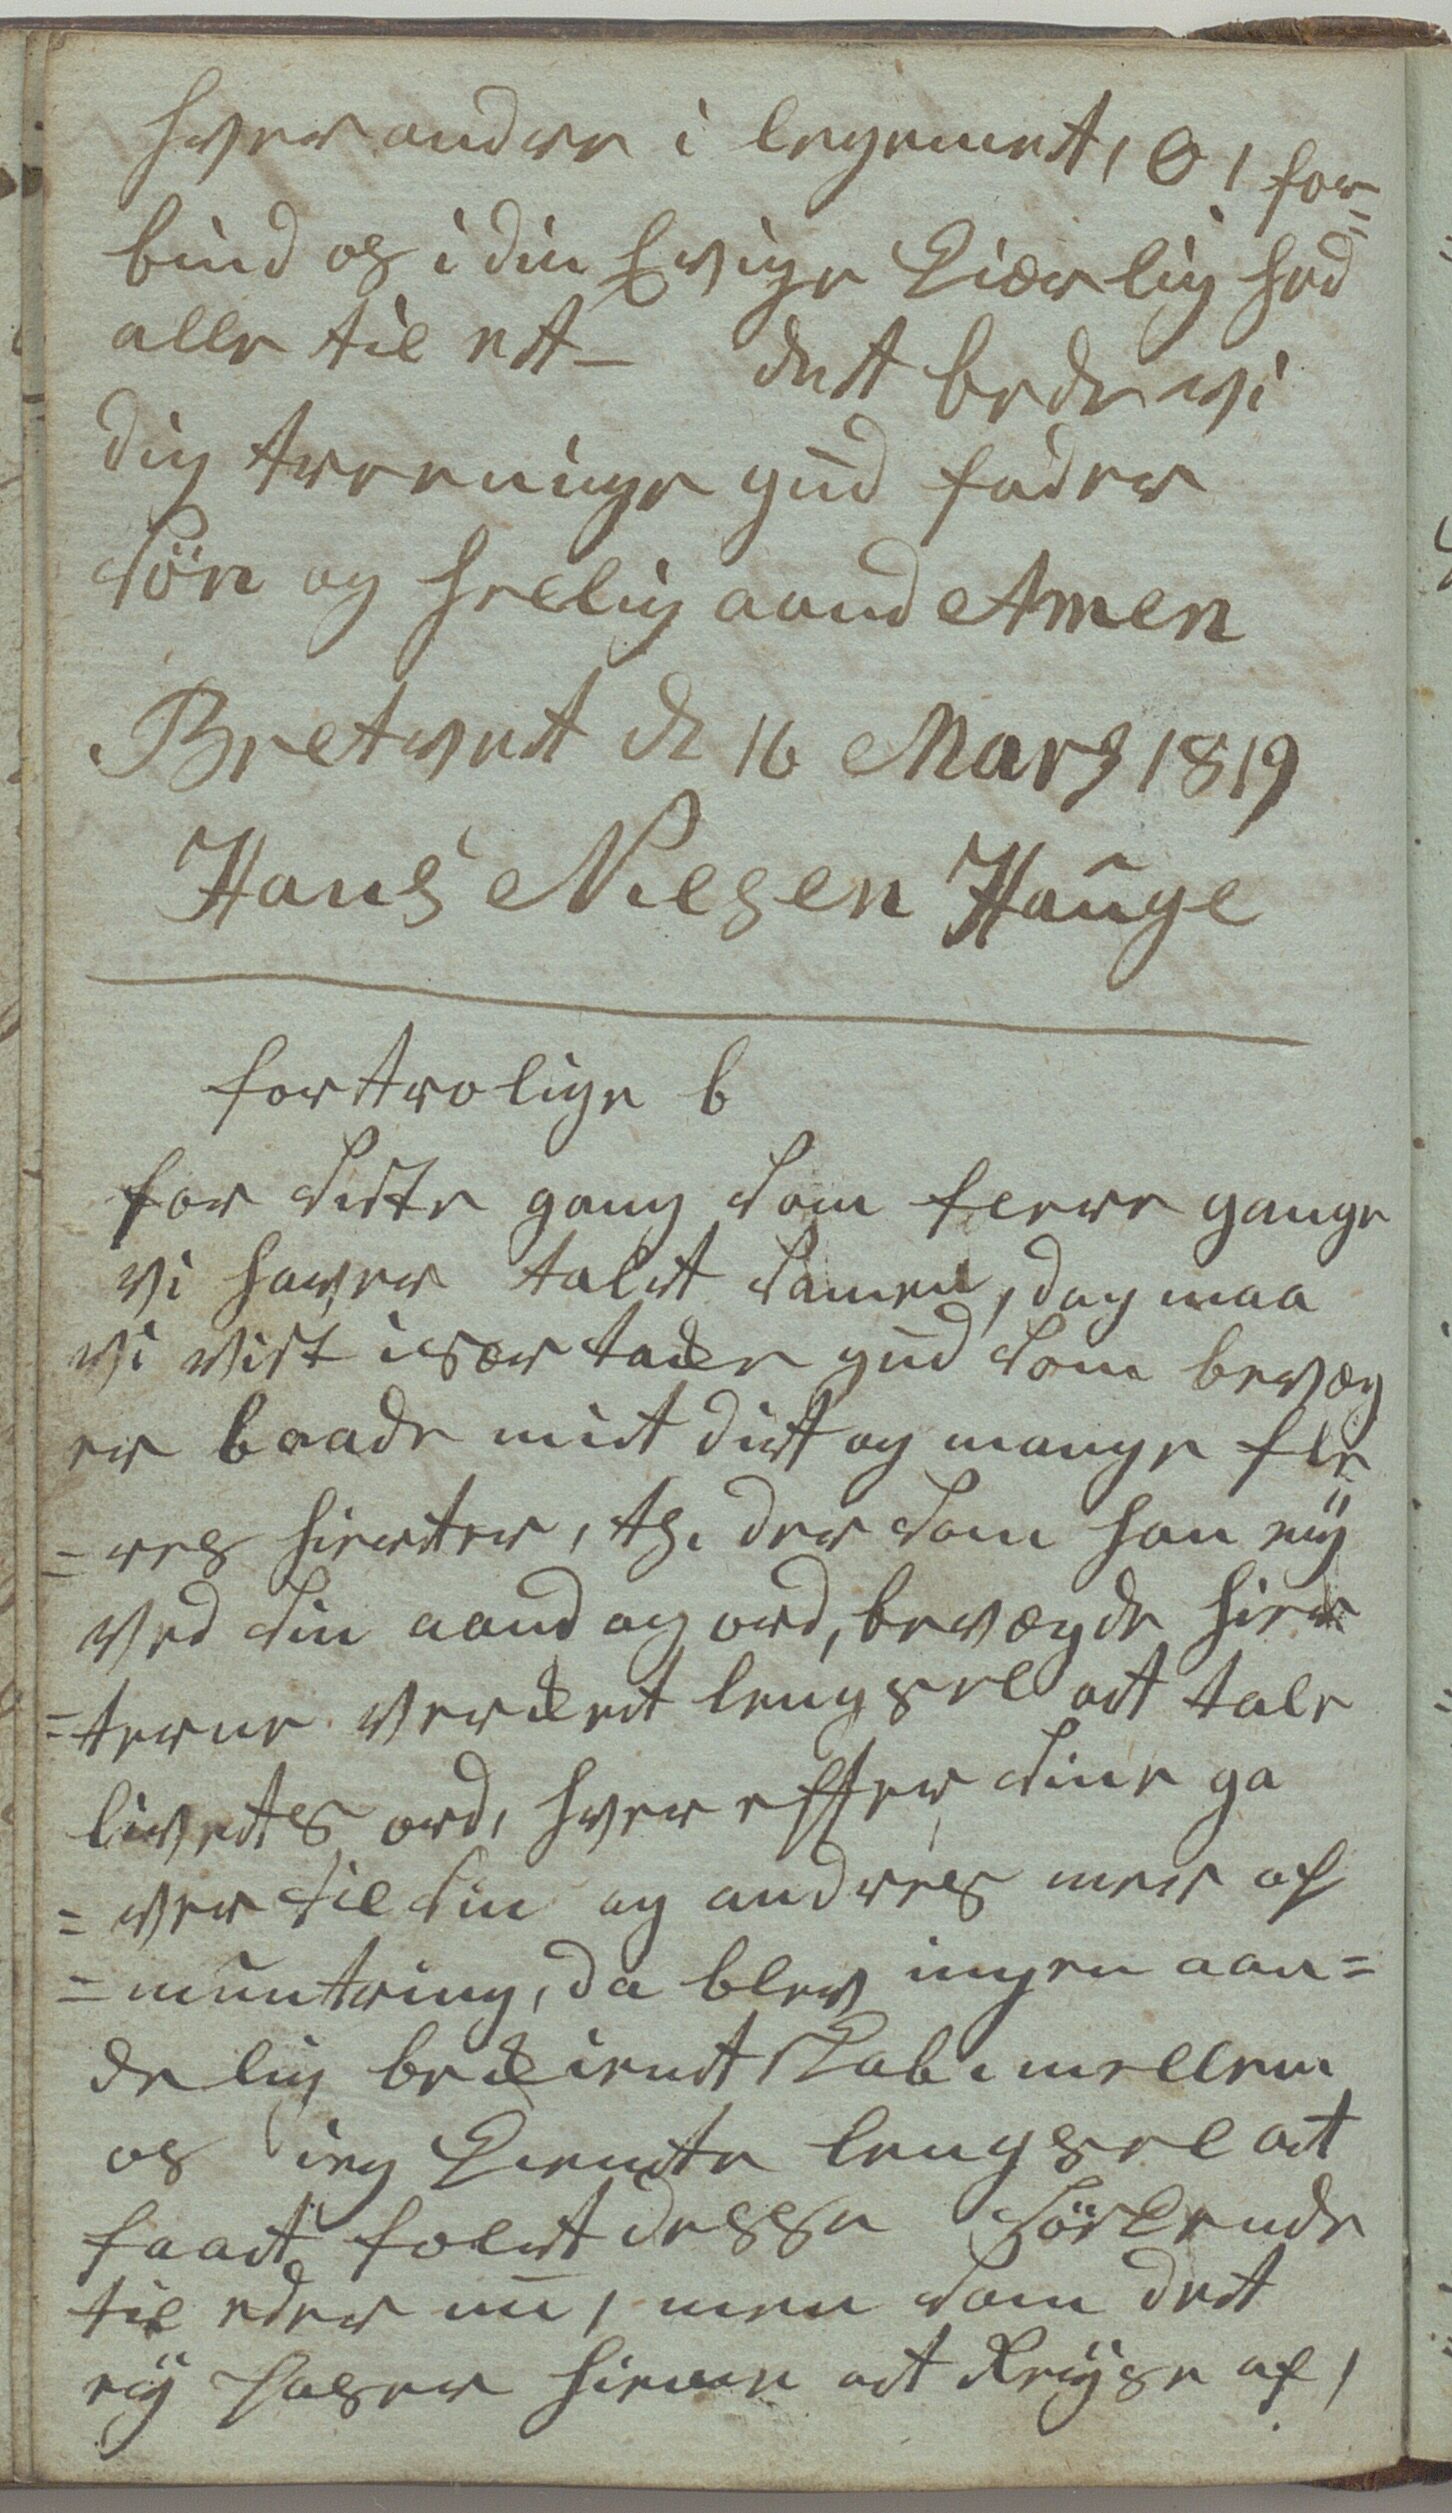 hverandre i legemet, O! for=
bind os i din Evige Kiærlighed
alle til et – det bede vi
dig treenige gud fader
Sön og hellig aand Amen
Bretvet d 16 Marz 1819
Hans Nielsen Hauge
fortrolige b
for Siste gang Som flere gange
vi haver talet Samen, dog maa
vi vist især takke gud Som bevæg
er baade mit dit og mange fle
=res hierter, th. der Som han eÿ
ved Sin aand og ord, bevægde hier
=terne verket lengsel at tale
livets ord, hver efter Sine ga
=ver til Sin og andres mer op
=muntring, da blev ingen aan=
delig bekiendtskab imellem
os ieg Kiente lengsel at
faaet folet desse Sörkende
til eder nu, men Som det
eÿ passer hieme at Reÿse af,